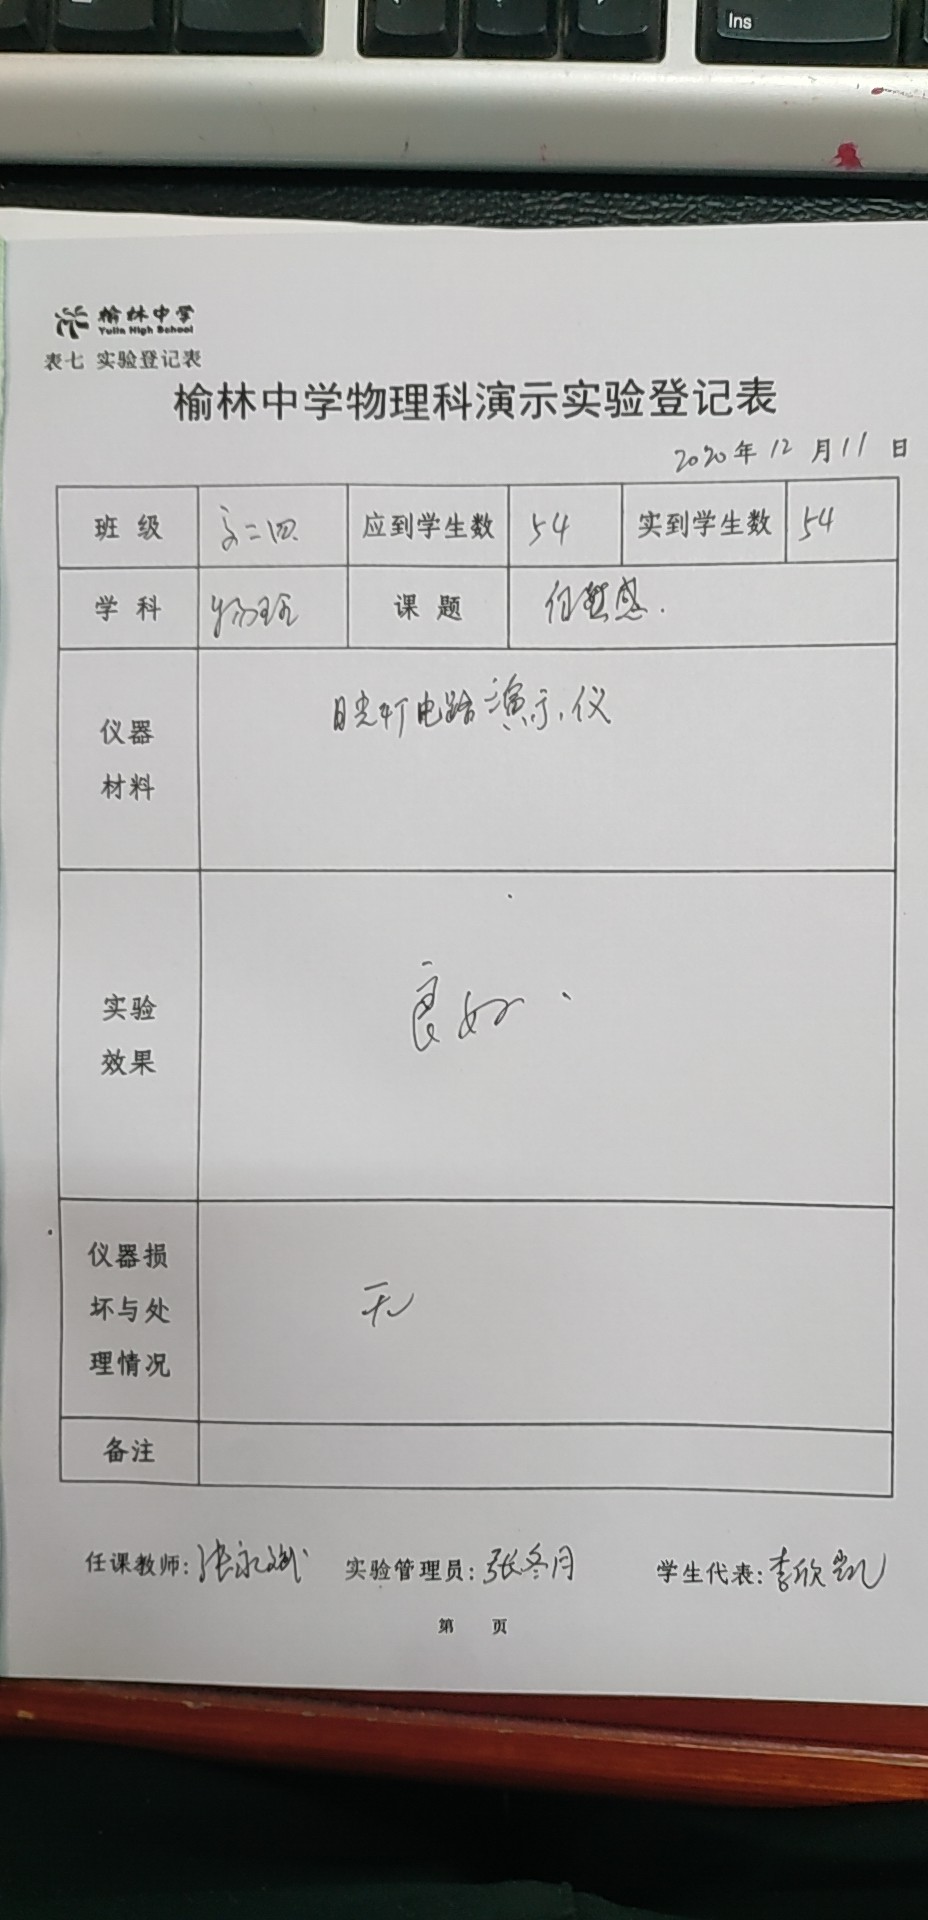 Ins
榆林中学
Yulin High School
表七 实验登记表
榆林中学物理科演示实验登记表
2020年12月11日
班 级 文二四 应到学生数 54 实到学生数 54
学 科 物理 课 题
仪器
材料
日光灯电路演示仪
实验
效果
良好.
仪器损
坏与处
理情况
无
备注
任课教师: 张永斌 实验管理员: 张冬月 学生代表: 李欣凯
第 页